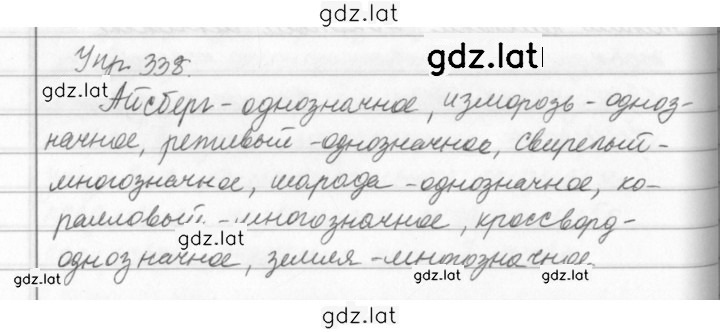 gdz.lat
Упр 338.
gdz.lat
gdz.lat
Айсберг - однозначное, изморозь - одноз-
начное, ретивый - однозначное, свирепый -
многозначное, шарада - однозначное, ко-
ралловый - многозначное, кроссворд -
gdz.lat
однозначное, земля - многозначное.
gdz.lat
gdz.lat
gdz.lat
gdz.lat